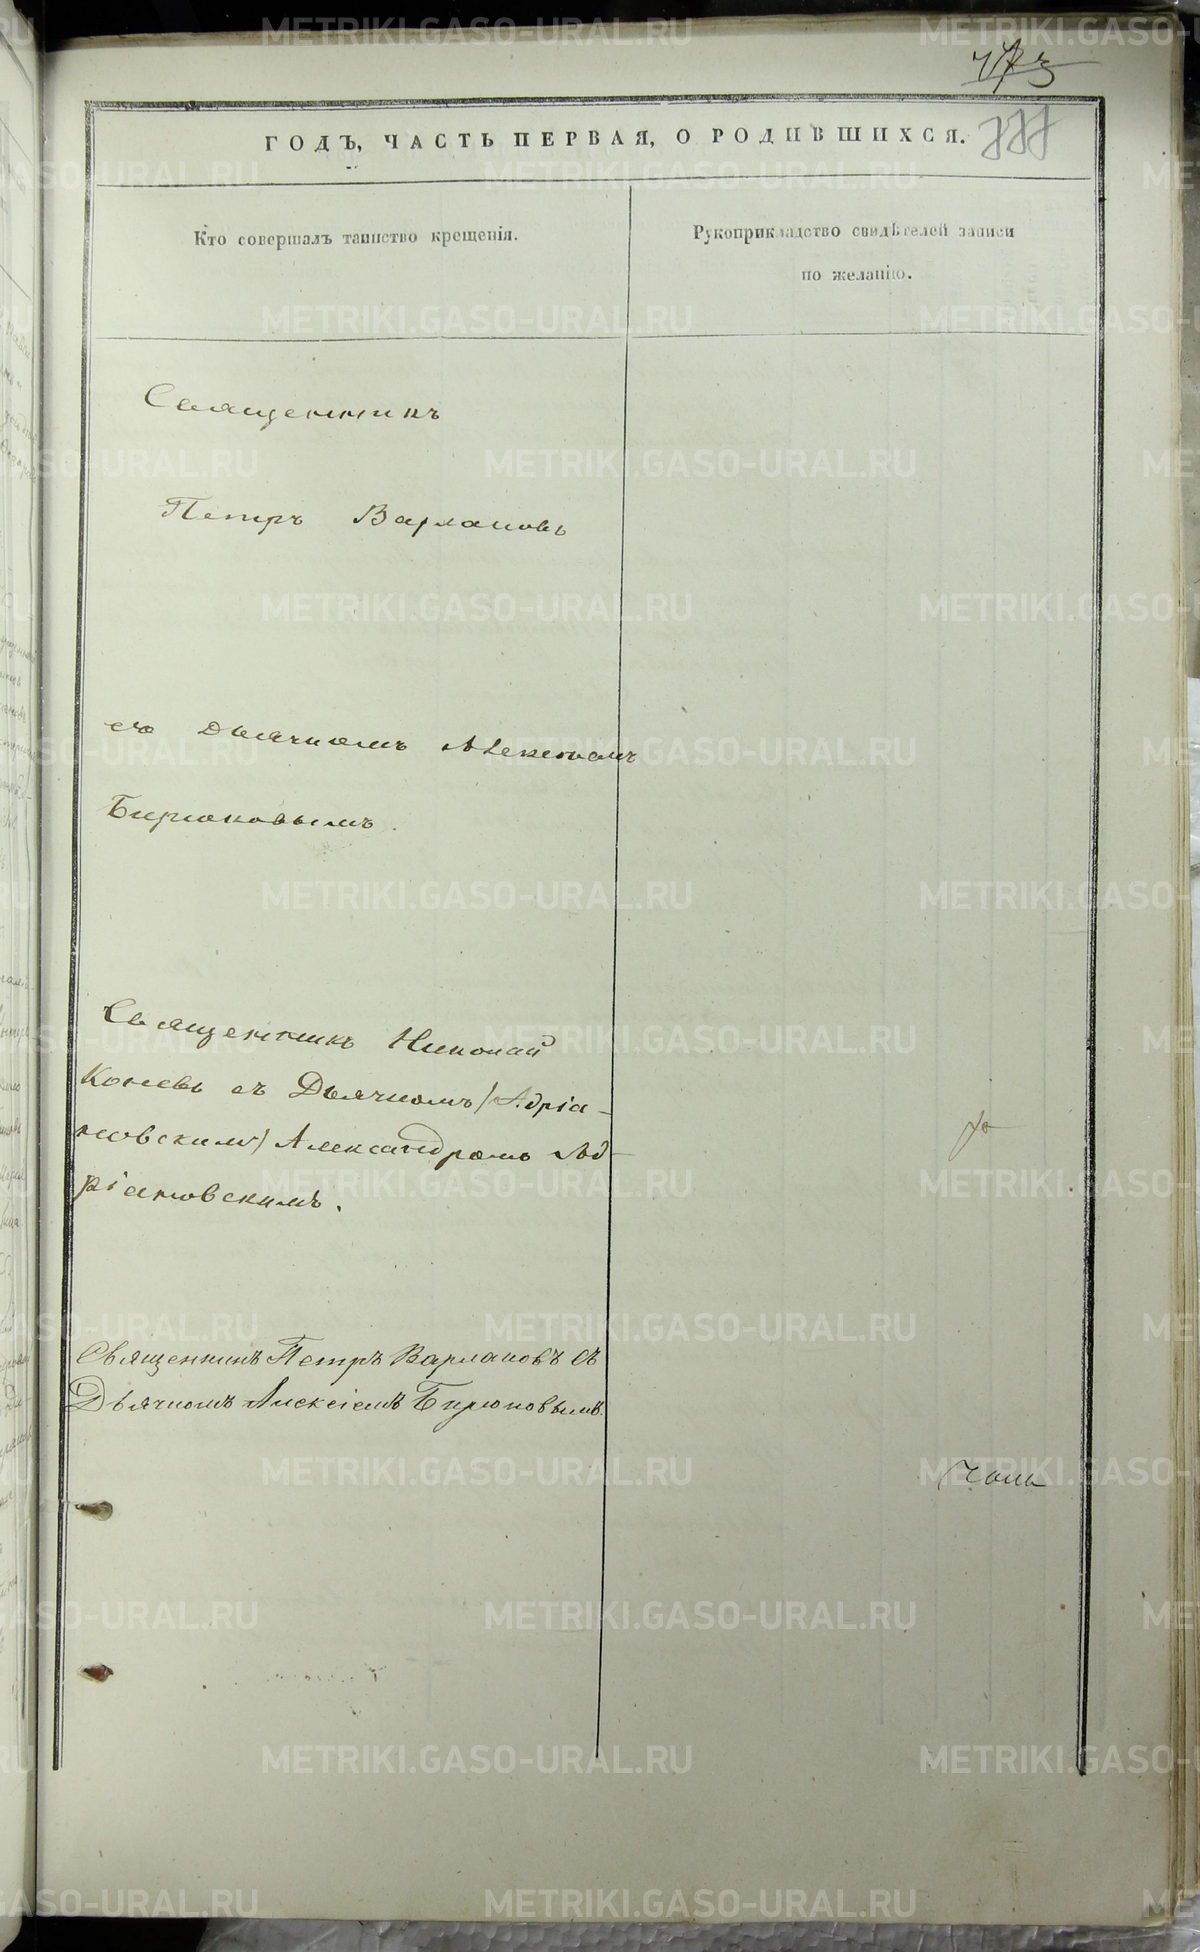 ГОДЪ, ЧАСТЬ ПЕРВАЯ, О РОДИВШИХСЯ. 777
Кто совершалъ таинство крещенія.
Рукоприкладство свидѣтелей записи
по желанію.
Священникъ
Петръ Варлаковъ
съ Дьячкомъ Алексѣемъ
Бирюковымъ.
Священникъ Николай
Коневъ съ Дьячкомъ /Адріа-
новскимъ/ Александромъ Ад-
ріановскимъ.
Священникъ Петръ Варлаковъ съ
Дьячкомъ Алексіемъ Бирюковымъ.
METRIKI.GASO-URAL.RU